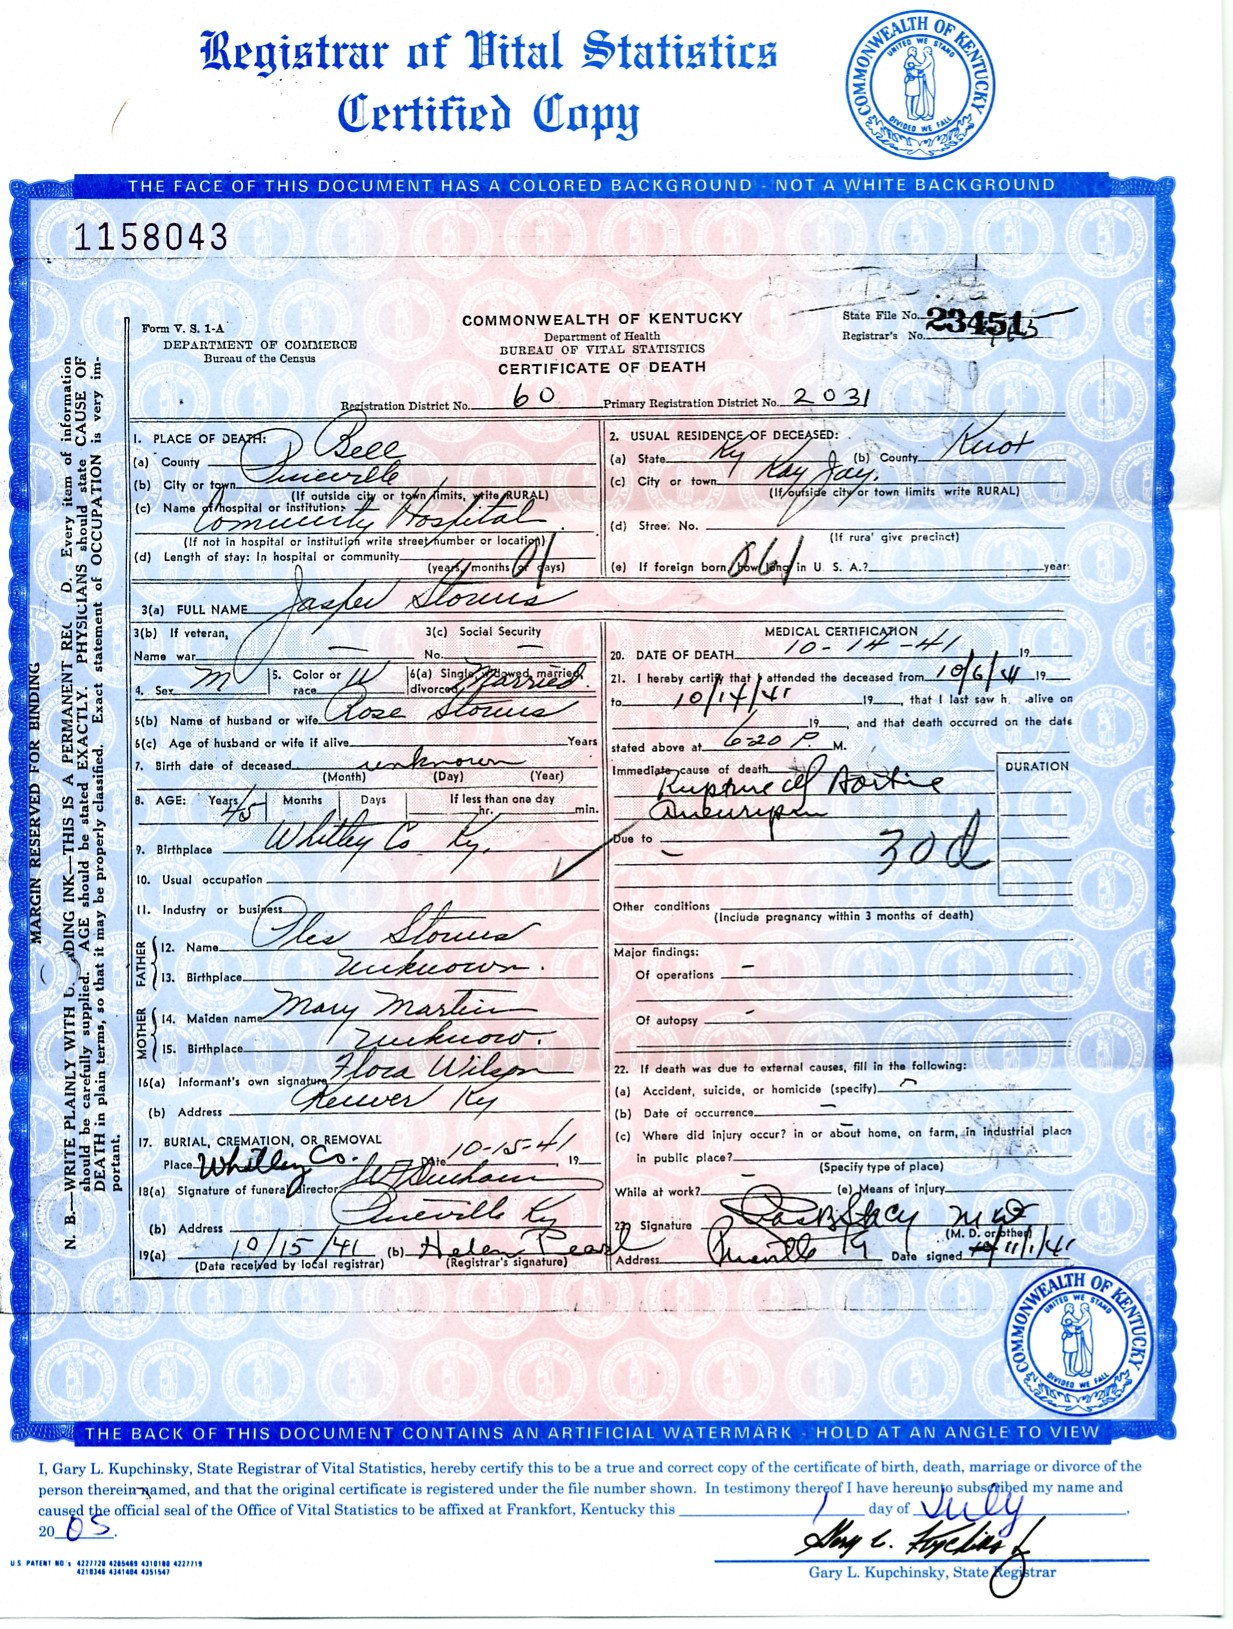 Registrar of Vital Statistics
Certified Copy
COMMONWEALTH OF KENTUCKY
UNITED WE STAND
DIVIDED WE FALL
THE FACE OF THIS DOCUMENT HAS A COLORED BACKGROUND - NOT A WHITE BACKGROUND
1158043
Form V. S. 1-A
DEPARTMENT OF COMMERCE
Bureau of the Census
COMMONWEALTH OF KENTUCKY
Department of Health
BUREAU OF VITAL STATISTICS
CERTIFICATE OF DEATH
State File No. 23451
Registrar's No.
Registration District No. 60 Primary Registration District No. 2031
MARGIN RESERVED FOR BINDING
N. B.—WRITE PLAINLY WITH U ADING INK—THIS IS A PERMANENT REC D. Every item of information
should be carefully supplied. AGE should be stated EXACTLY. PHYSICIANS should state CAUSE OF
DEATH in plain terms, so that it may be properly classified. Exact statement of OCCUPATION is very im-
portant.
1. PLACE OF DEATH:
(a) County Bell
(b) City or town Pineville
(If outside city or town limits, write RURAL)
(c) Name of hospital or institution:
Community Hospital
(If not in hospital or institution write street number or location)
(d) Length of stay: In hospital or community
(years, months or days)
2. USUAL RESIDENCE OF DECEASED:
(a) State Ky (b) County Knox
(c) City or town Kay Jay.
(If outside city or town limits write RURAL)
(d) Street No.
(If rural give precinct)
(e) If foreign born, how long in U. S. A.? year
3(a) FULL NAME Jasper Stowers
3(b) If veteran,
Name war —
3(c) Social Security
No. —
4. Sex M 5. Color or race W 6(a) Single, widowed, married, divorced Married
6(b) Name of husband or wife Rose Stowers
6(c) Age of husband or wife if alive Years
7. Birth date of deceased unknown
(Month) (Day) (Year)
8. AGE: Years 45 Months Days If less than one day
hr. min.
9. Birthplace Whitley Co Ky.
10. Usual occupation
11. Industry or business
FATHER
12. Name Ples Stowers
13. Birthplace unknown.
MOTHER
14. Maiden name Mary Martin
15. Birthplace unknow.
16(a) Informant's own signature Flora Wilson
(b) Address Ky
17. BURIAL, CREMATION, OR REMOVAL
Place Whitley Co. Date 10-15-41 19
18(a) Signature of funeral director
(b) Address Pineville Ky
19(a) 10/15/41 (b) Helen Pearl
(Date received by local registrar) (Registrar's signature)
MEDICAL CERTIFICATION
20. DATE OF DEATH 10-14-41 19
21. I hereby certify that I attended the deceased from 10/6/41 19
to 10/14/41 19 , that I last saw h alive on
19 , and that death occurred on the date
stated above at 6-20 P. M.
Immediate cause of death
Rupture of Aortic
Aneurysm
DURATION
Due to
30d
Other conditions
(Include pregnancy within 3 months of death)
Major findings:
Of operations —
Of autopsy —
22. If death was due to external causes, fill in the following:
(a) Accident, suicide, or homicide (specify) —
(b) Date of occurrence —
(c) Where did injury occur? in or about home, on farm, in industrial place
in public place?
(Specify type of place)
While at work? (e) Means of injury
23. Signature Stacy MD
(M. D. or other)
Address Pineville Ky Date signed 11/1/41
COMMONWEALTH OF KENTUCKY
UNITED WE STAND
DIVIDED WE FALL
THE BACK OF THIS DOCUMENT CONTAINS AN ARTIFICIAL WATERMARK - HOLD AT AN ANGLE TO VIEW
I, Gary L. Kupchinsky, State Registrar of Vital Statistics, hereby certify this to be a true and correct copy of the certificate of birth, death, marriage or divorce of the
person therein named, and that the original certificate is registered under the file number shown. In testimony thereof I have hereunto subscribed my name and
caused the official seal of the Office of Vital Statistics to be affixed at Frankfort, Kentucky this 1 day of July,
20 05.
U.S. PATENT NO's 4227720 4265469 4310180 4227719
4210346 4341404 4351547
Gary L. Kupchinsky, State Registrar